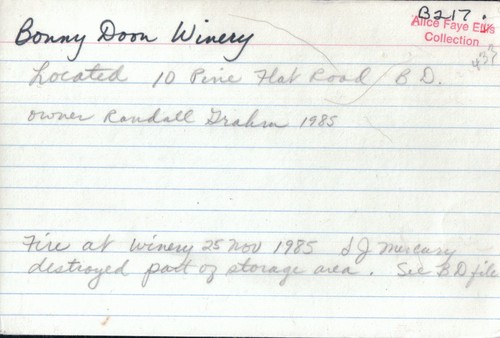 B217.
Alice Faye Ellis
Collection
Bonny Doon Winery
Located 10 Pine Flat Road B.D.
owner Randall Grahm 1985
Fire at winery 25 Nov 1985 SJ Mercury
destroyed part of storage area. See B.D file